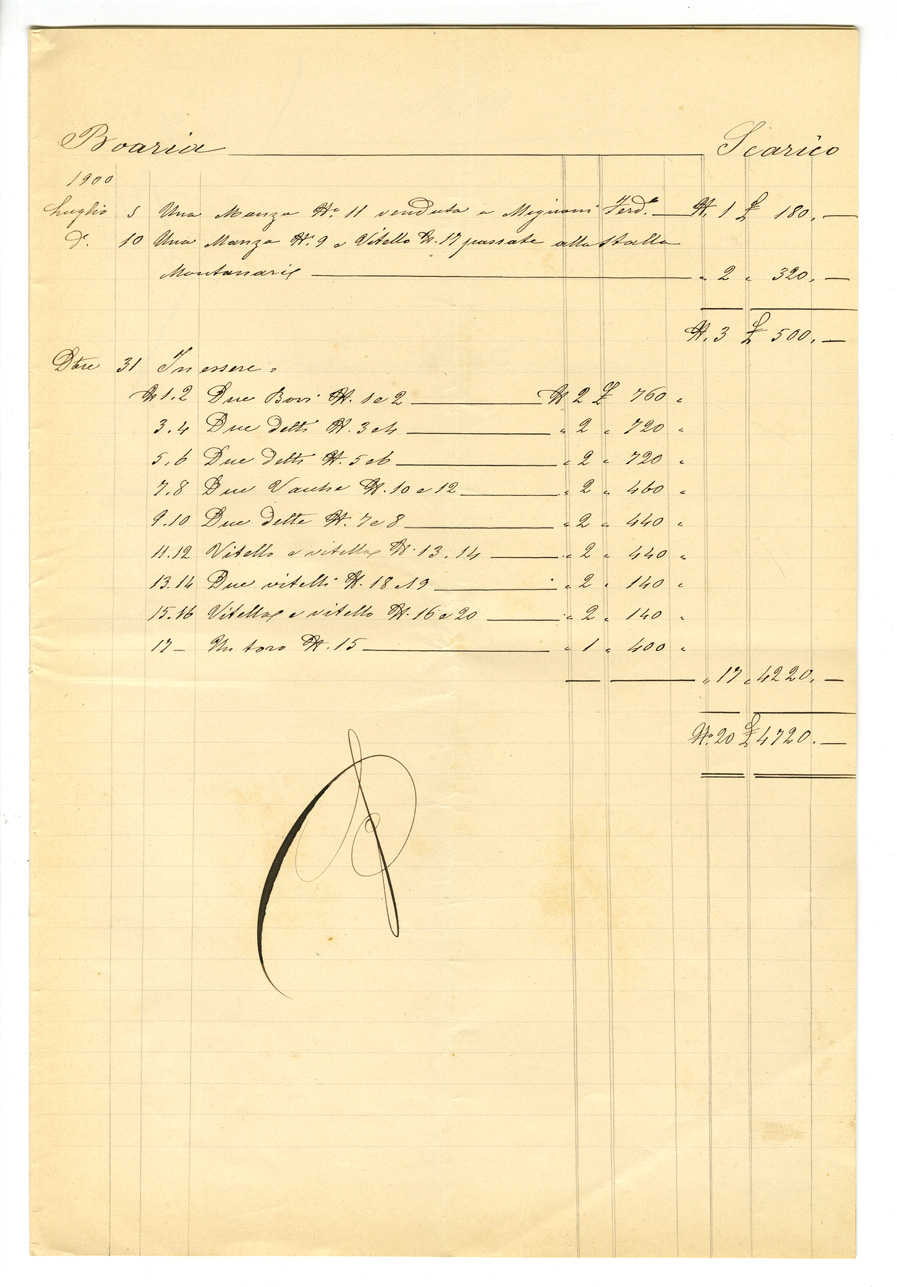 Boaria Scarico
1900
Luglio 5 Una Manza N.° 11 venduta a Mignani Ferd.° N. 1 £ 180. —
D.° 10 Una Manza N. 9 e Vitello N. 17 passate alla Stalla
Montanari " 2 " 320. —
N. 3 £ 500. —
Dbre 31 In essere:
N 1.2 Due Bovi N. 1 e 2 N 2 £ 760 "
3.4 Due detti N. 3 e 4 " 2 " 720 "
5.6 Due detti N. 5 e 6 " 2 " 720 "
7.8 Due Vacche N. 10 e 12 " 2 " 460 "
9.10 Due dette N. 7 e 8 " 2 " 440 "
11.12 Vitello e vitella N. 13.14 " 2 " 440 "
13.14 Due vitelli N. 18 e 19 " 2 " 140 "
15.16 Vitella e vitello N. 16 e 20 " 2 " 140 "
17 — Un toro N. 15 " 1 " 400 "
" 17 " 4220. —
N.° 20 £ 4720. —